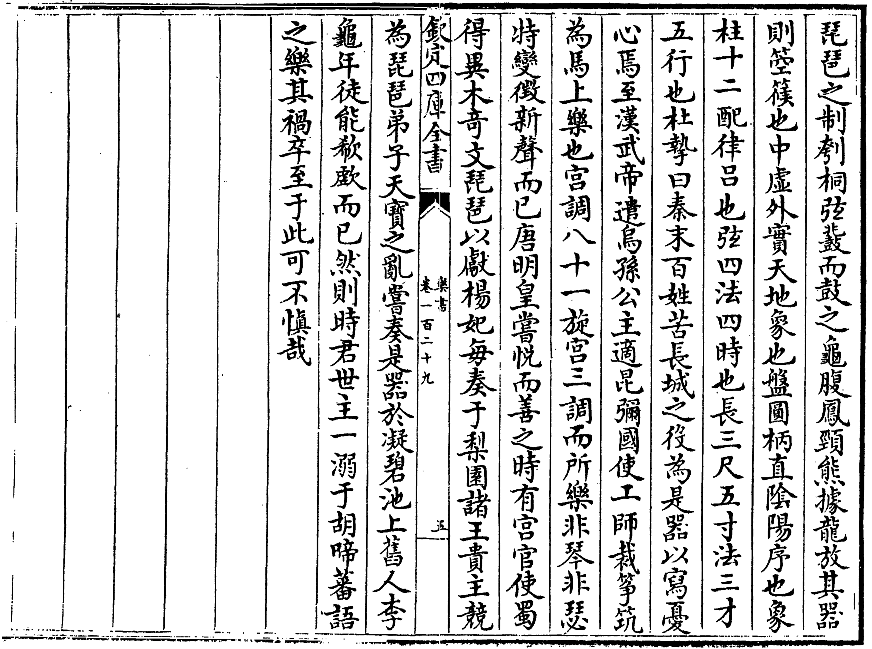 琵琶之制刳桐弦鼗而鼓之龜腹鳳頸熊據龍放其器
則箜篌也中虛外實天地象也盤圓柄直陰陽序也象
柱十二配律呂也弦四法四時也長三尺五寸法三才
五行也杜摯曰秦末百姓苦長城之役為是器以寫憂
心焉至漢武帝遣烏孫公主適昆彌國使工師裁箏筑
為馬上樂也宫調八十一旋宫三調而所樂非琴非瑟
特變徴新聲而已唐明皇嘗悅而善之時有宫官使蜀
得異木奇文琵琶以獻楊妃每奏于梨園諸王貴主競
欽定四庫全書
樂書
卷一百二十九
五
為琵琶弟子天寶之亂嘗奏是器於凝碧池上舊人李
龜年徒能欷歔而已然則時君世主一溺于胡啼蕃語
之樂其禍卒至于此可不慎哉